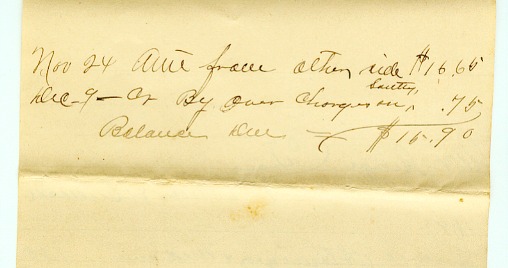 Nov 24 Amt from other side $16.65
Dec 9 - Cr By over charges on, .75
Balance Due - $15.90